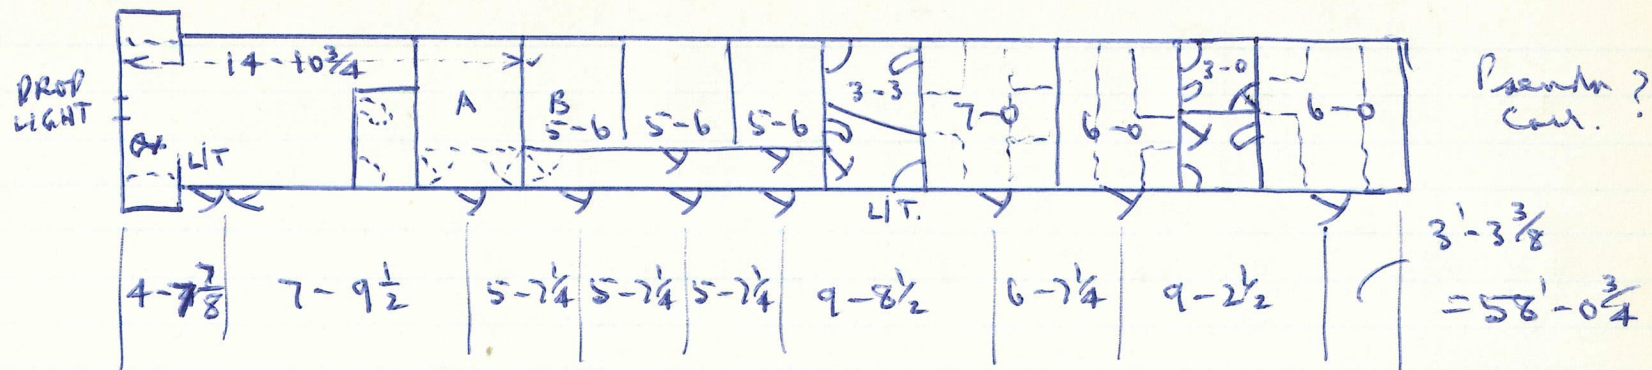 DROP
LIGHT
14-10 3/4
A
B
5-6
5-6
5-6
3-3
7-0
6-0
3-0
6-0
?
LIT
LIT.
4-7 7/8
7-9 1/2
5-7 1/4
5-7 1/4
5-7 1/4
9-8 1/2
6-7 1/4
9-2 1/2
3'-3 3/8
=58'-0 3/4